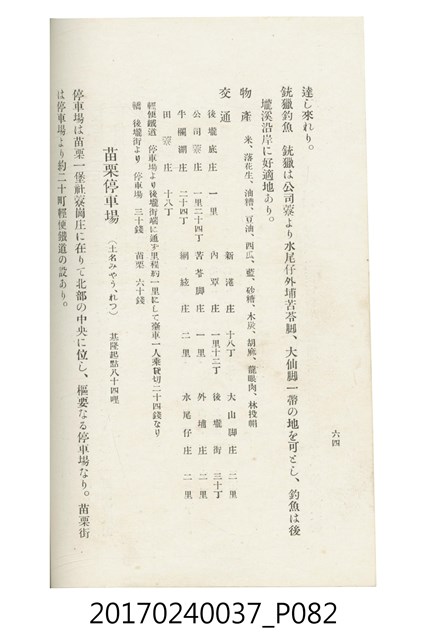 六四
達し來れり。
銃獵釣魚　銃獵は公司藔より水尾仔外埔苦苓脚、大仙脚一帶の地を可とし、釣魚は後
壠溪沿岸に好適地あり。
物產　米、落花生、油糟、豆油、西瓜、藍、砂糖、木炭、胡麻、龍眼肉、林投帽
交通
後壠底庄　一里　新港庄　十八丁　大山脚庄　二里
公司藔庄　一里二十四丁　內草庄　一里十二丁　後壠街　三十丁
牛欄湖庄　二十四丁　苦苓脚庄　一里　外埔庄　二里
田藔庄　十八丁　網絞庄　二里　水尾仔庄　二里
輕便鐵道　停車場より後壠街端に通ず里程約一里にして臺車一人乘貸切二十四錢なり
轎　後壠街より　停車場　三十錢　苗栗　六十錢
苗栗停車場　（土名みやうれつ）　基隆起點八十四哩
停車場は苗栗一堡社藔崗庄に在りて北部の中央に位し、樞要なる停車場なり。苗栗街
は停車場より約二十町輕便鐵道の設あり。
20170240037_P082